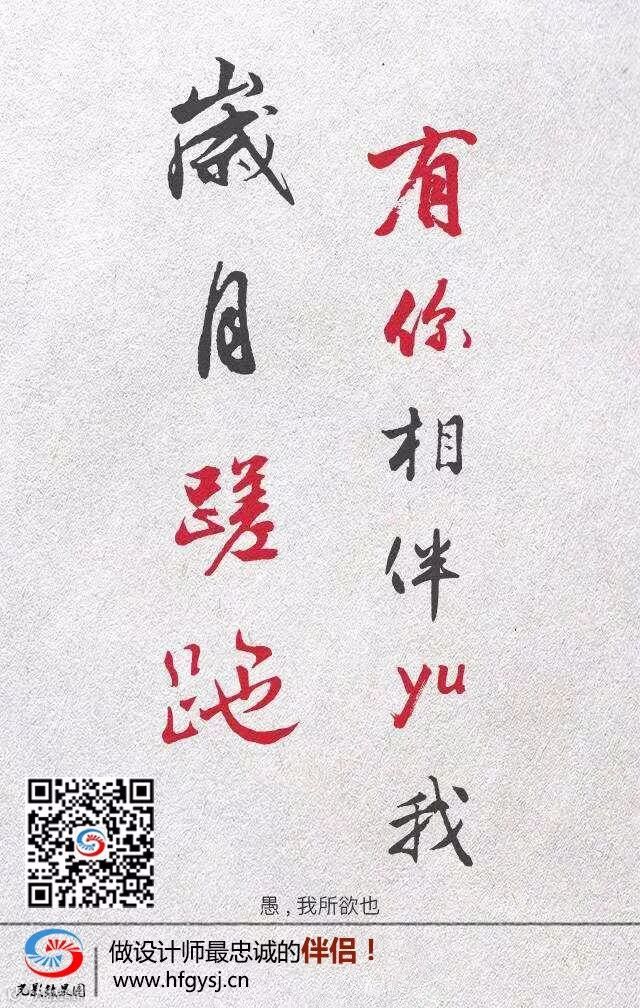 有你相伴yu我
歲月蹉跎
愚，我所欲也
做设计师最忠诚的伴侣！
www.hfgysj.cn
光影效果图